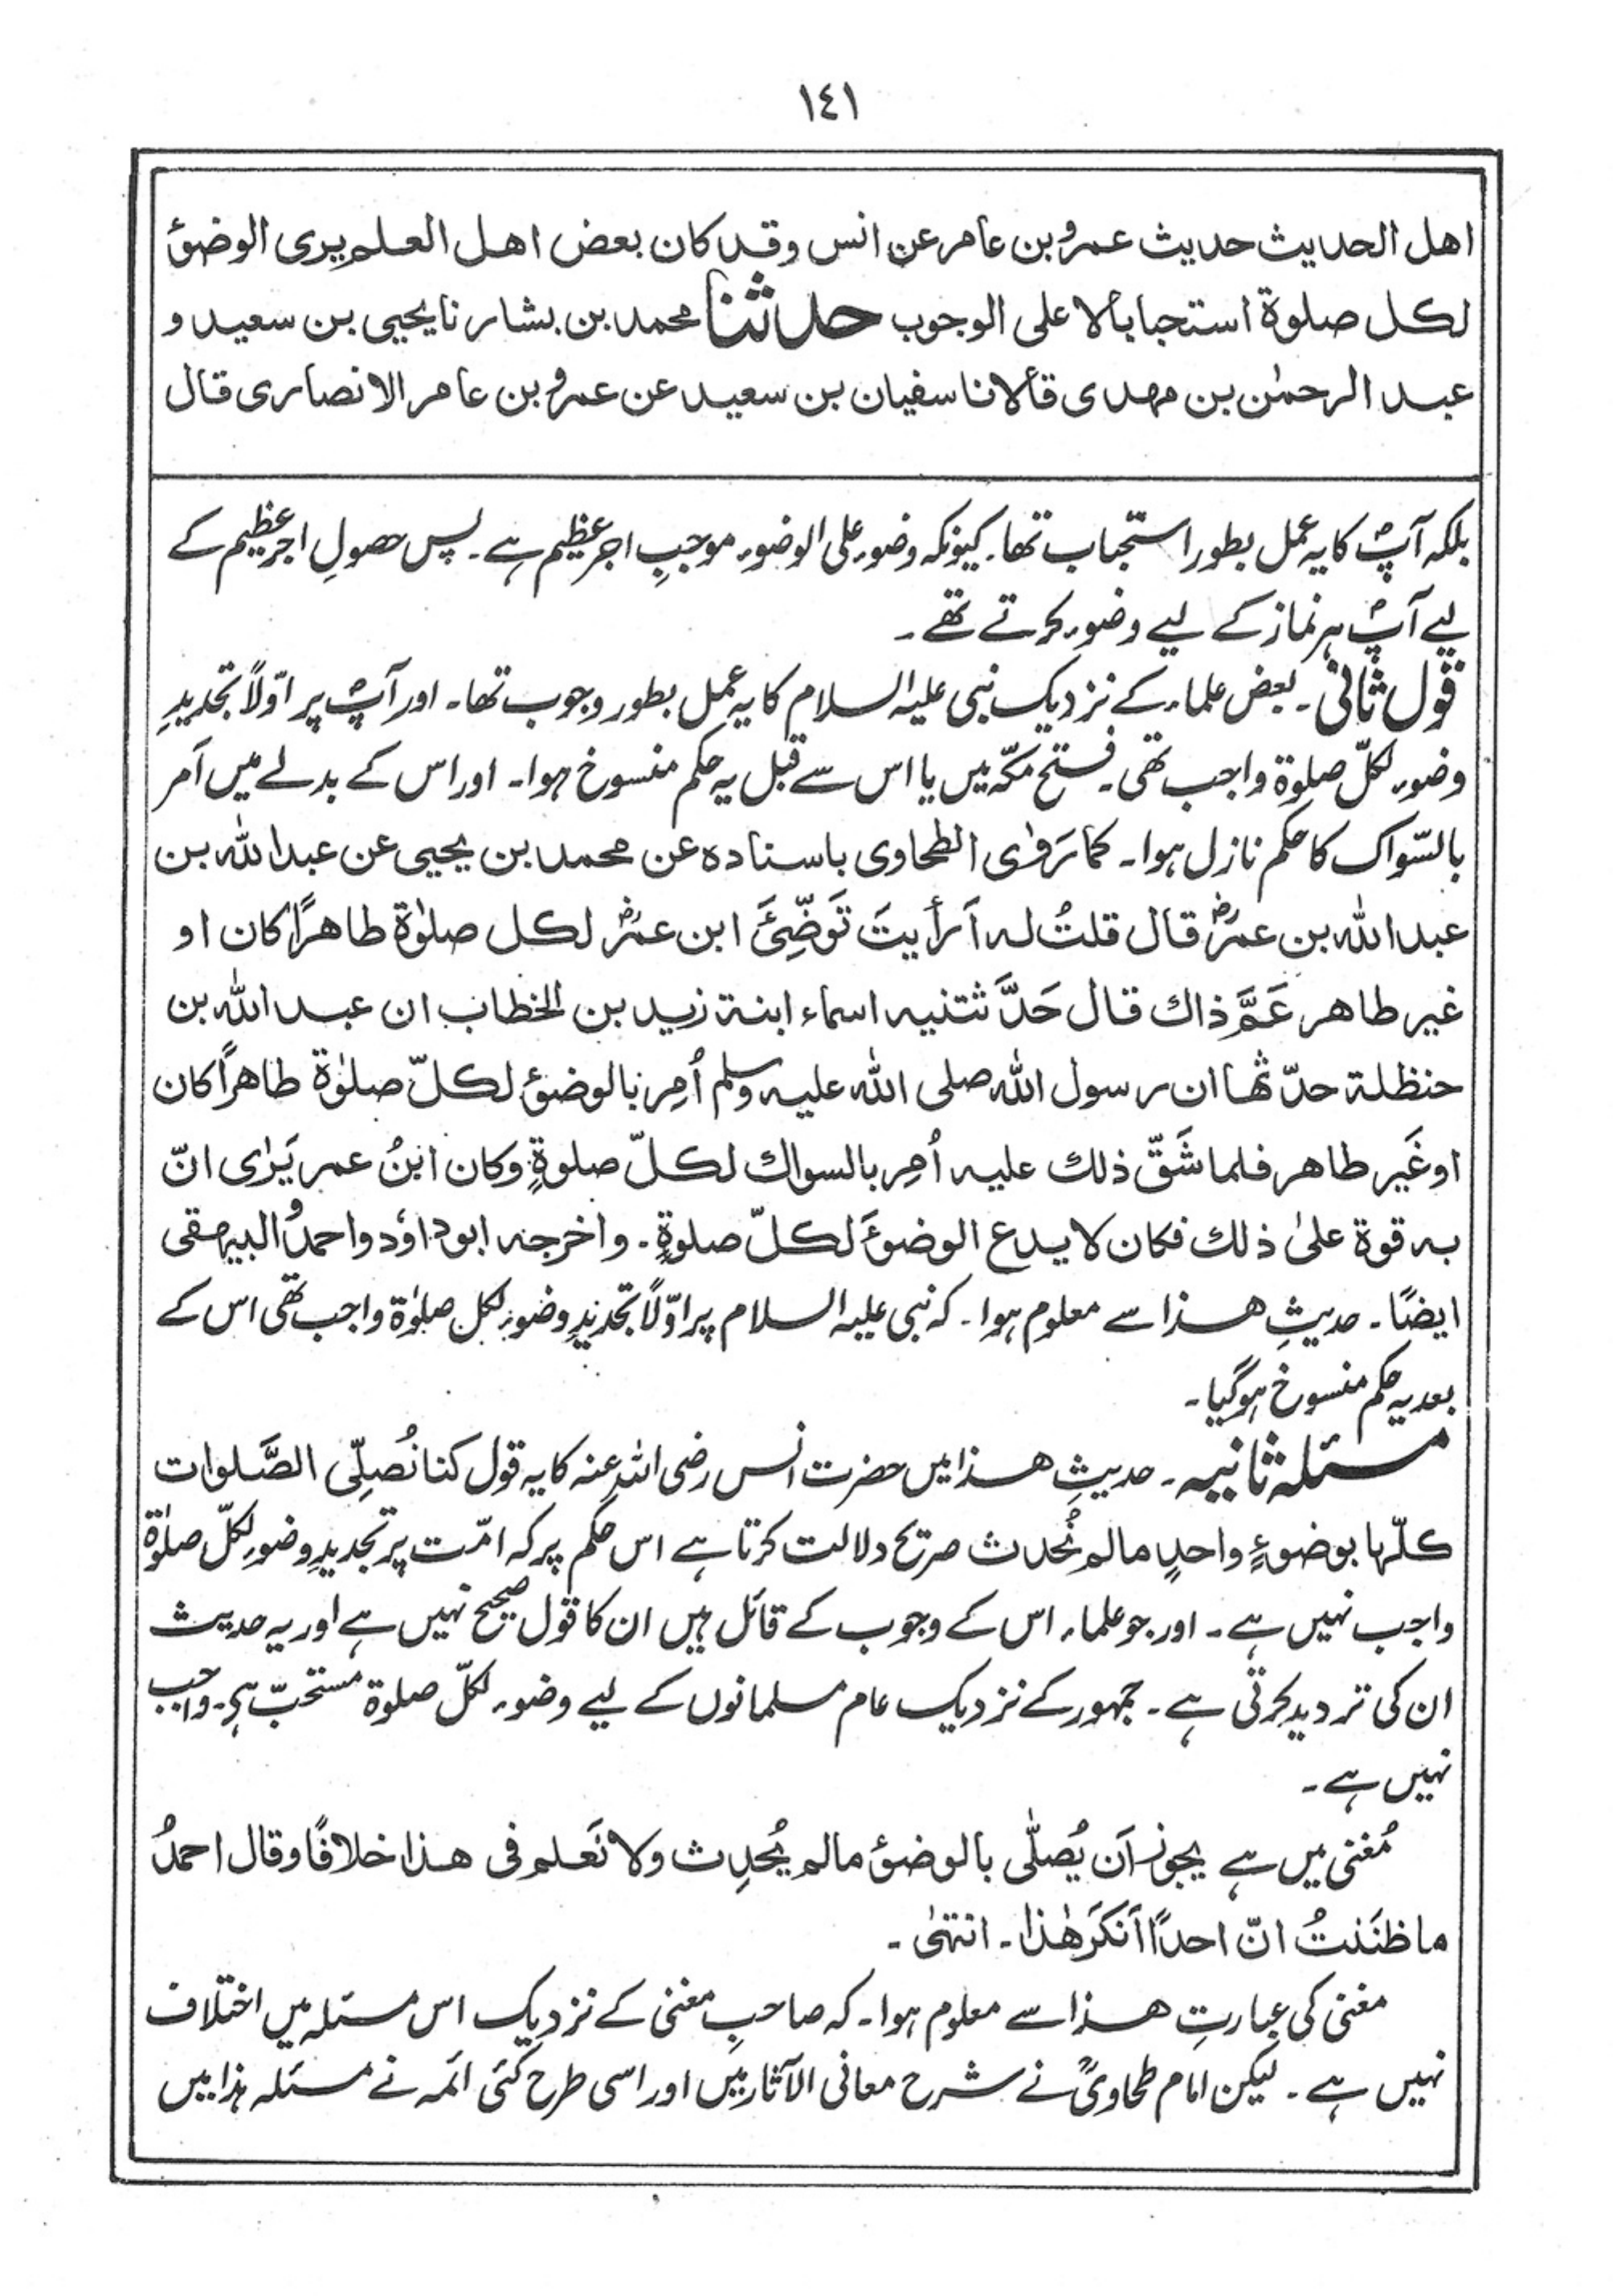 ١٤١
اهل الحديث حديث عمرو بن عامر عن انس وقد كان بعض اهل العلم يرى الوضوٴ
لكل صلوة استحبابا لا على الوجوب حدثنا محمد بن بشار نا يحيى بن سعيد و
عبد الرحمٰن بن مهدى قالا نا سفيان بن سعيد عن عمرو بن عامر الانصارى قال
بلکہ آپؐ کا یہ عمل بطور استحباب تھا۔ کیونکہ وضوء علی الوضوء موجبِ اجرِ عظیم ہے۔ پس حصولِ اجرِ عظیم کے
لیے آپؐ ہر نماز کے لیے وضوء کرتے تھے۔
قول ثانی۔ بعض علماء کے نزدیک نبی علیہ السلام کا یہ عمل بطور وجوب تھا۔ اور آپؐ پر اوّلاً تجدیدِ
وضوء لکلّ صلوة واجب تھی۔ فتح مکّہ میں یا اس سے قبل یہ حکم منسوخ ہوا۔ اور اس کے بدلے میں اَمر
بالسّواک کا حکم نازل ہوا۔ كما رَوٰى الطحاوى باسناده عن محمد بن يحيى عن عبد الله بن
عبد الله بن عمرؓ قال قلتُ له اَرأيتَ تَوَضِّئَ ابن عمرؓ لكل صلوٰة طاهرًا كان او
غير طاهر عَمَّ ذاك قال حَدَّثتنيه اسماء ابنة زيد بن الخطاب ان عبد الله بن
حنظلة حدّثها ان رسول الله صلى الله عليه وسلم اُمِر بالوضوٴ لكلّ صلوٰة طاهرًا كان
او غَير طاهر فلما شَقّ ذلك عليه اُمِر بالسواك لكلّ صلوةٍ وكان ابنُ عمر يَرٰى انّ
به قوة علىٰ ذلك فكان لا يدع الوضوٴَ لكلّ صلوةٍ۔ واخرجه ابو داؤد واحمدُ والبيهقى
ايضًا۔ حدیثِ هذا سے معلوم ہوا۔ کہ نبی علیہ السلام پر اوّلاً تجدیدِ وضوءِ لکل صلوٰة واجب تھی اس کے
بعد یہ حکم منسوخ ہوگیا۔
مسئلہ ثانیہ۔ حدیثِ هذا میں حضرت انس رضی اللہ عنہ کا یہ قول كنا نُصلِّى الصَّلوات
كلّها بوضوءٍ واحدٍ مالم نُحدث صریح دلالت کرتا ہے اس حکم پر کہ امّت پر تجدیدِ وضوءِ لکلّ صلوٰة
واجب نہیں ہے۔ اور جو علماء اس کے وجوب کے قائل ہیں ان کا قول صحیح نہیں ہے اور یہ حدیث
ان کی تردید کرتی ہے۔ جمہور کے نزدیک عام مسلمانوں کے لیے وضوء لکلّ صلوة مستحبّ ہے۔ واجب
نہیں ہے۔
مُغنی میں ہے يجوز اَن يُصلّى بالوضوٴ مالم يُحدِث ولا نَعلم فى هذا خلافًا وقال احمدُ
ما ظنَنتُ انّ احدًا اَنكَرَ هٰذا۔ انتهىٰ۔
مغنی کی عبارتِ هذا سے معلوم ہوا۔ کہ صاحبِ مغنی کے نزدیک اس مسئلہ میں اختلاف
نہیں ہے۔ لیکن امام طحاویؒ نے شرح معانی الآثار میں اور اسی طرح کئی ائمہ نے مسئلہ ہذا میں